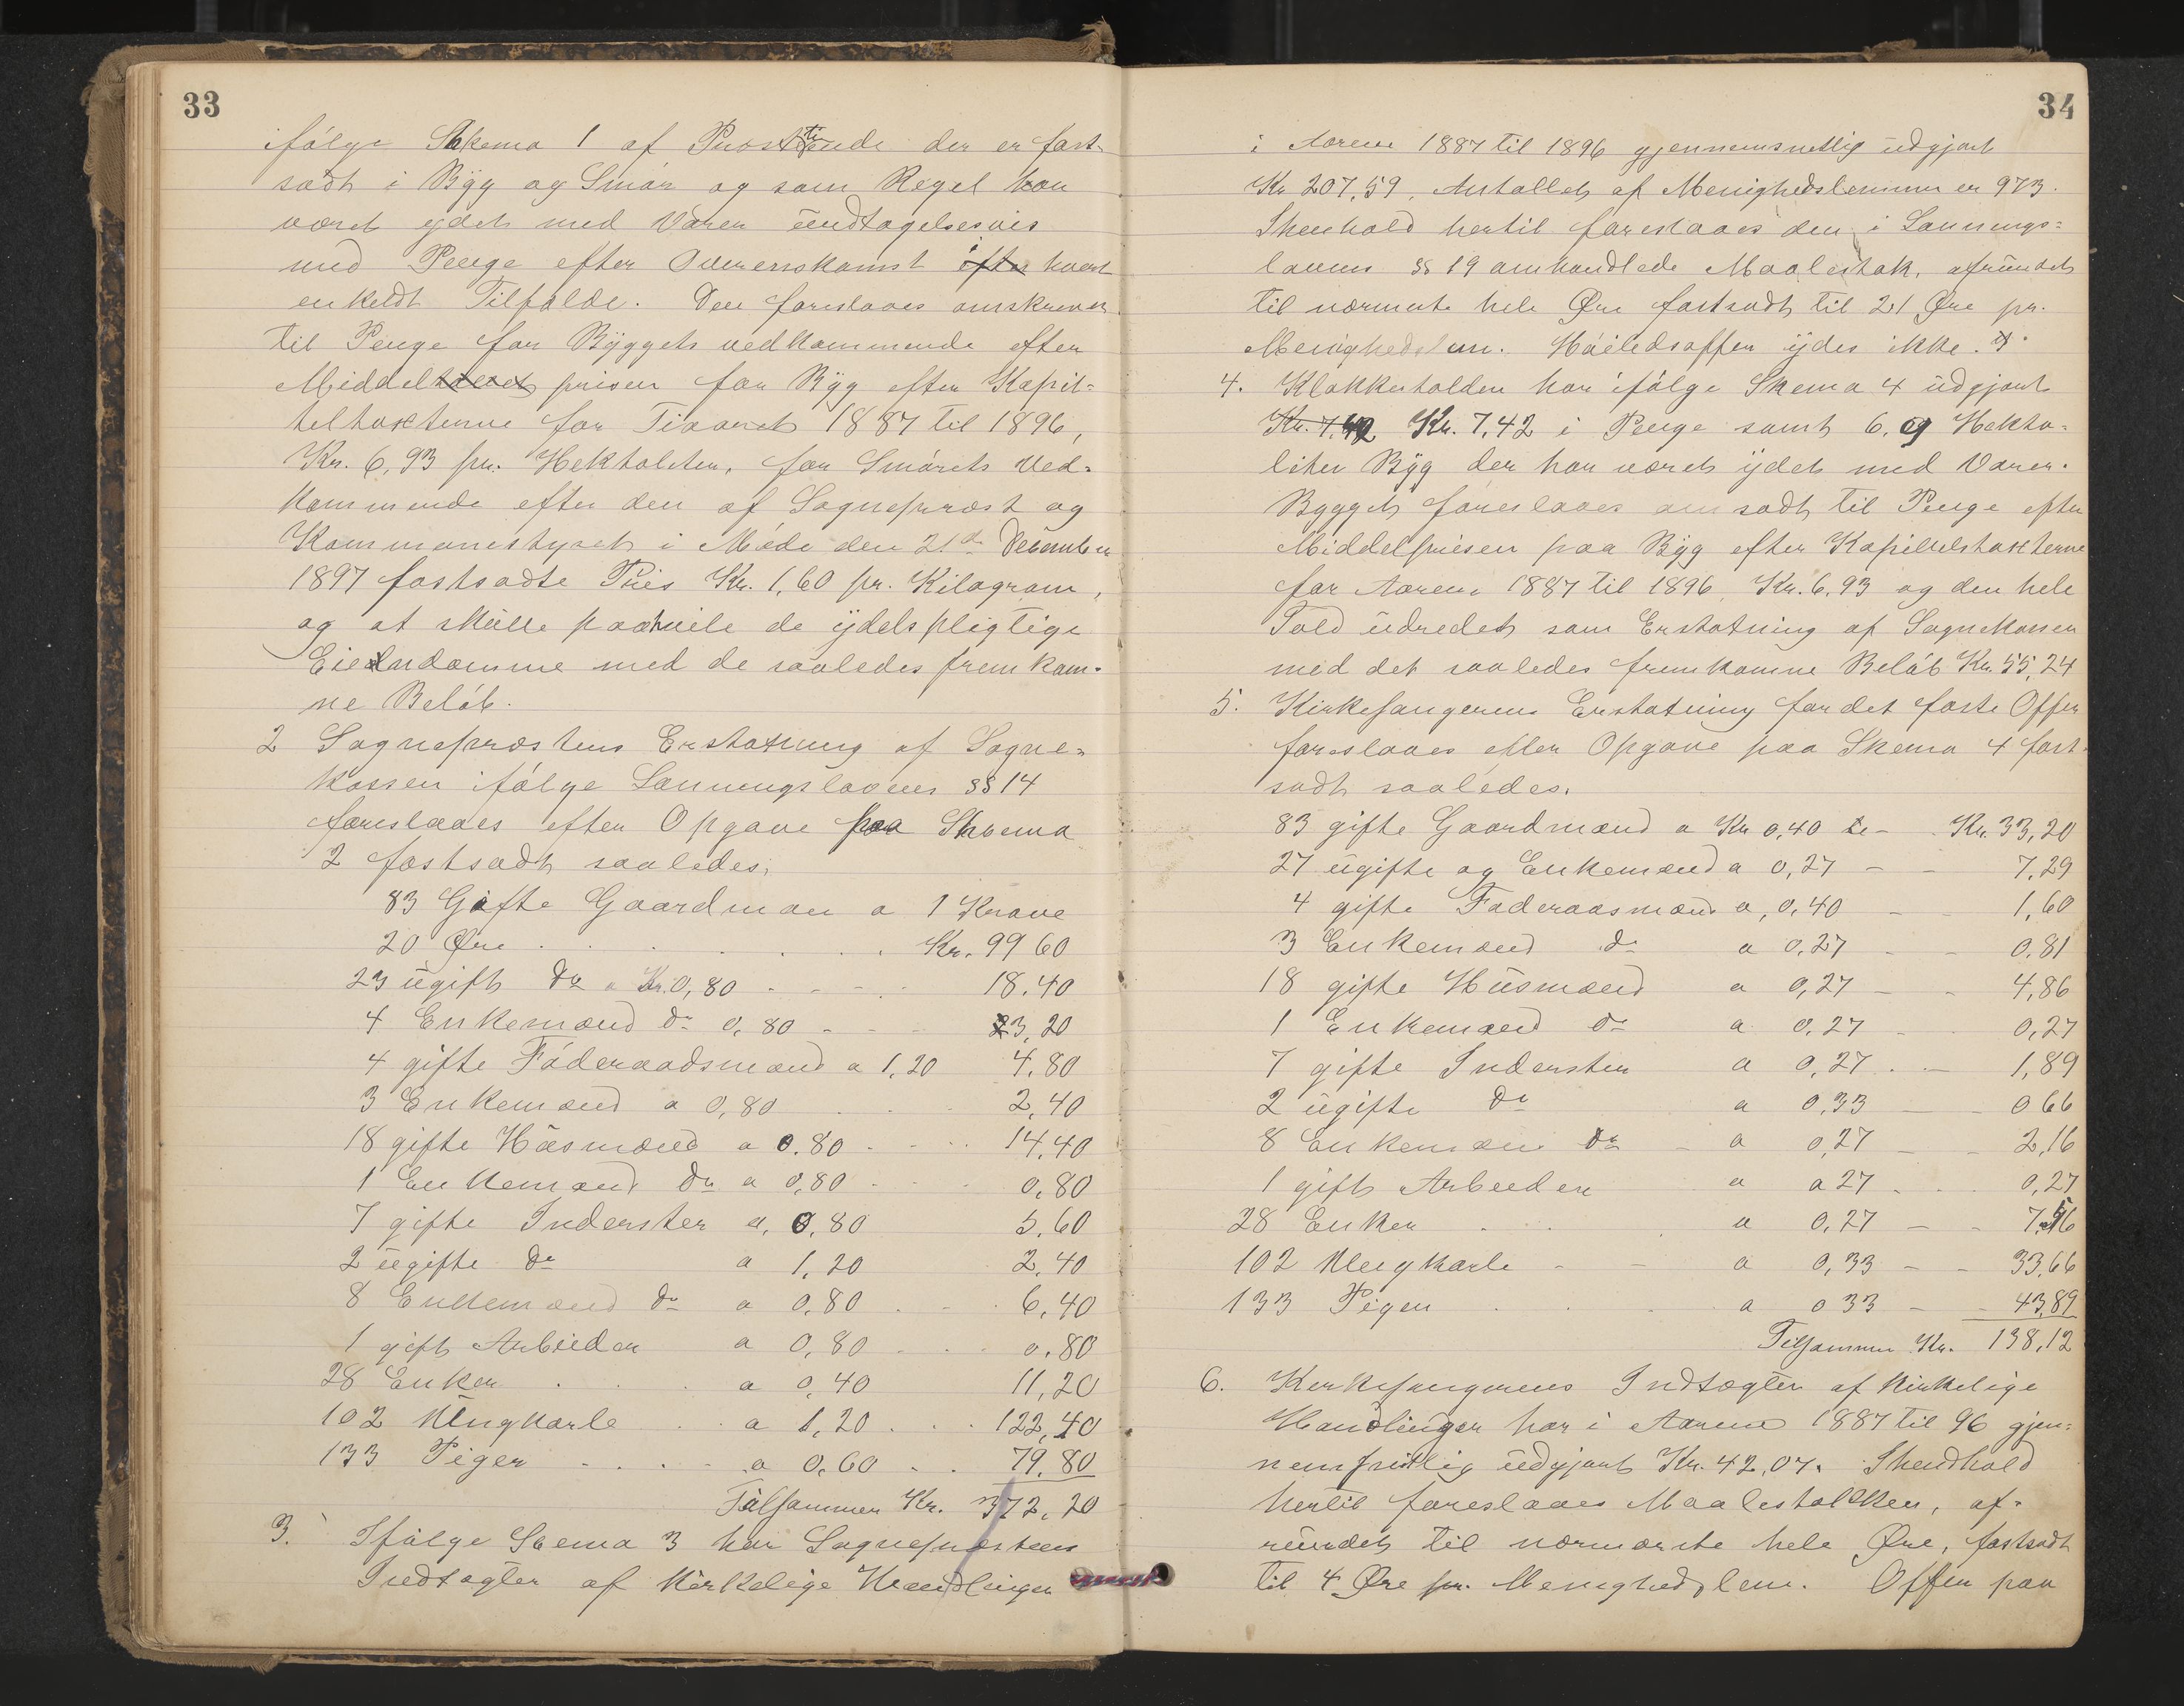 33
ifølge Skema 1 af Prestetiende der er fast-
sadt i Byg og Smør og som Regel har
været ydet med Varer undtagelsesvis
med Penge efter Overenskomst efter hvert
enkeldt Tilfælde. Den foreslaaes omskreven
til Penge for Byggets vedkommende efter
Middel prisen for Byg efter Kapit-
teltaxterne for Tiaaret 1887 til 1896,
Kr. 6,93 pr. Hektoliter, for Smørets Ved-
kommende efter den af Sognepræst og
Kommunestyret i Møde den 21de December
1897 fastsadte Pris Kr. 1,60 pr. Kilogram,
og at skulle paahvile de ydelspligtige
Eiendomme med de saaledes fremkom-
ne Beløb.
2 Sognepræstens Erstatning af Sogne-
kassen ifølge Lønningslovens §§ 14
foreslaaes efter Opgave paa Skema
2 fastsadt saaledes,
83 Gifte Gaardmæn a 1 Krone
20 Øre . . . . . . Kr. 99 60
23 ugift do a Kr. 0,80 - - - 18.40
4 Enkemænd do 0,80 - - - 3,20
4 gifte Føderaadsmænd a 1,20 4,80
3 Enkemænd a 0,80 2,40
18 gifte Husmænd a 0.80 - - - 14,40
1 Enkemand do a 0,80 - - 0,80
7 gifte Inderster a, 0,80 5,60
2 ugifte do a 1,20 2,40
8 Enkemænd do a 0,80 . - . 6,40
1 gift Arbeider a 0,80 - . . 0.80
28 Enker . . . a 0,40 11,20
102 Ungkarle . . a 1,20 . . . 122,40
133 Piger - . . - . a 0,60 . . 79,80
Tilsammen Kr. 372,20
3. Ifølge Scema 3 har Sognepræstens
Indtægter af Kirkelige Handlinger
34
i Aarene 1887 til 1896 gjennemsnitlig udgjort
Kr 207,59, Antallet af Menighedslemmer er 973.
I henhold hertil foreslaaes den i Lønnings-
lovens §§ 19 omhandlede Maalestok, afrundet
til nærmeste hele Øre fastsadt til 21 Øre pr.
Menighedslem. Høitidsoffer ydes ikke.
4. Klokkertolden har ifølge Skema 4 udgjort
Kr. 7,42 Kr. 7,42 i Penge samt 6,9 Hekto-
liter Byg der har været ydet med Varer.
Bygget foreslaaes omsadt til Penge efter
Middelprisen paa Byg efter Kapitelstaxterne
for Aarene 1887 til 1896, Kr. 6,93 og den hele
Told udredet som Erstatning af Sognekassen
med det saaledes fremkomne Beløb Kr. 55,24
5. Kirkesangerens Erstatning for det faste Offer
foreslaaes efter Opgave paa Skema 4 fast-
sadt saaledes.
83 gifte Gaardmænd a Kr 0,40 - . Kr. 33,20
27 ugifte og Enkemænd a 0,27 - - 7,29
4 gifte Føderaasmænd a, 0,40 - - 1,60
3 Enkemænd do a 0,27 - - 0,81
18 gifte Husmænd a 0,27 - - 4,86
1 Enkemænd do a 0,27 - - 0,27
7 gifte Inderster a 0,27 . - 1,89
2 ugifte do a 0,33 - - 0 66
8 Enkemæn do - a 0,27 - - 2,16
1 gift Arbeider a a 27 . . . 0,27
28 Enker . . . a 0,27 - - 7,56
102 Ungkarle - - a 0,33 - - 33,66
133 Piger . . . a 0 33 - - 43,89
Tilsammen Kr. 138,12
6. Kirkesangerens Indtægter af kirkelige
Handlinger har i Aarene 1887 til 96 gjen-
nemsnitlig udgjort Kr. 42,07. I henhold
hertil foreslaaes Maalestokken, af-
rundet til nærmæste hele Øre, fastsadt
til 4 Øre pr. Menighedslem. Offer paa